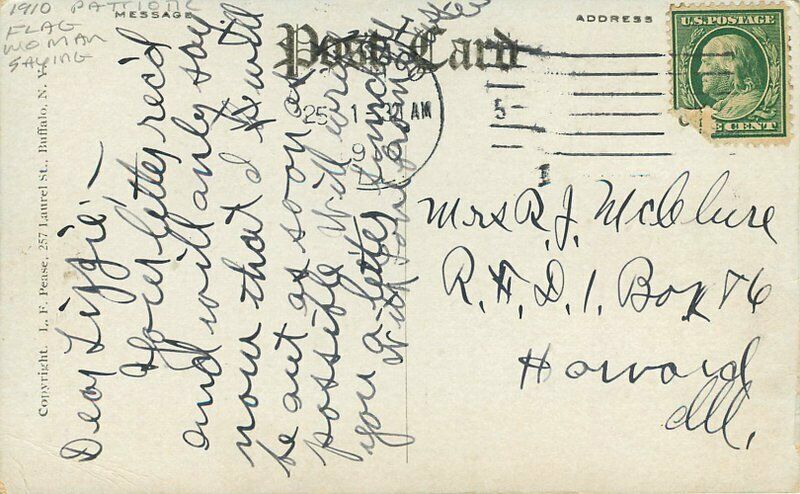 1910 PATRIOTIC
FLAG
WOMAN
SAYING
MESSAGE
Post Card
ADDRESS
U.S. POSTAGE
E CENT
25
1
30 AM
19
5-
1
Copyright. L. F. Pease, 257 Laurel St., Buffalo, N. Y.
Dear Lizzie;—
Your letter rec'd
and will only say
now that I will
be out as soon as
possible will write
you a letter
with love
Mrs R. J. McClure
R. F. D. 1. Box 76
Howard
Ill.